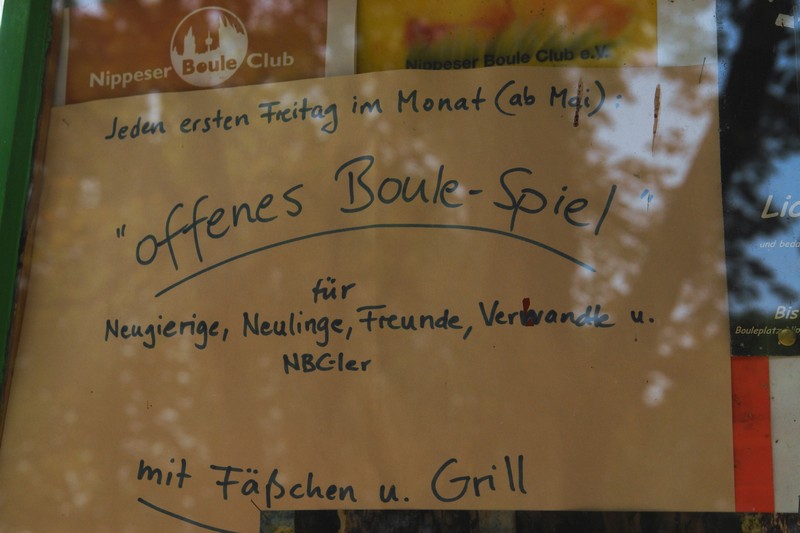 Nippeser Boule Club
Nippeser Boule Club e.V.
Jeden ersten Freitag im Monat (ab Mai):
"offenes Boule-Spiel"
für
Neugierige, Neulinge, Freunde, Verwandte u.
NBC-ler
mit Fäßchen u. Grill
und
Bis
Bouleplatz